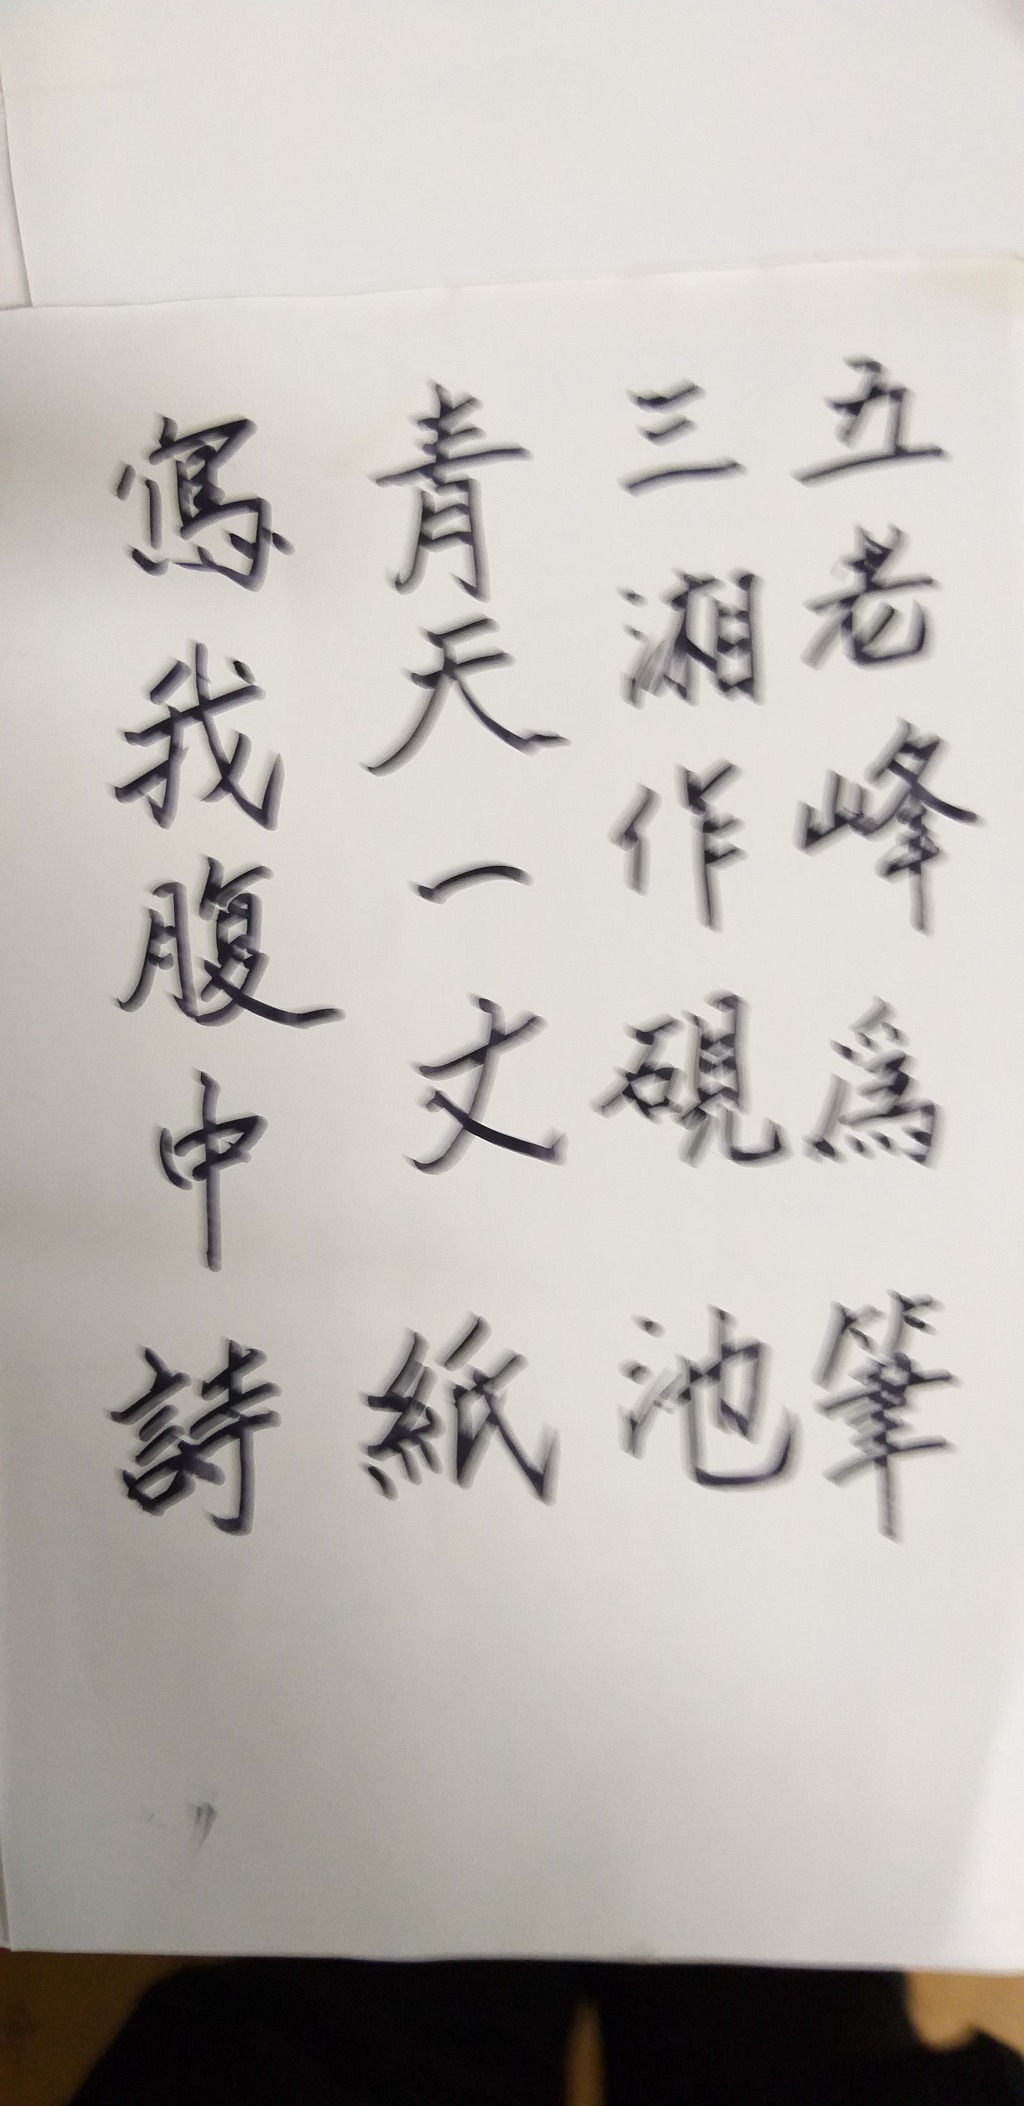 五老峰為筆
三湘作硯池
青天一丈紙
寫我腹中詩